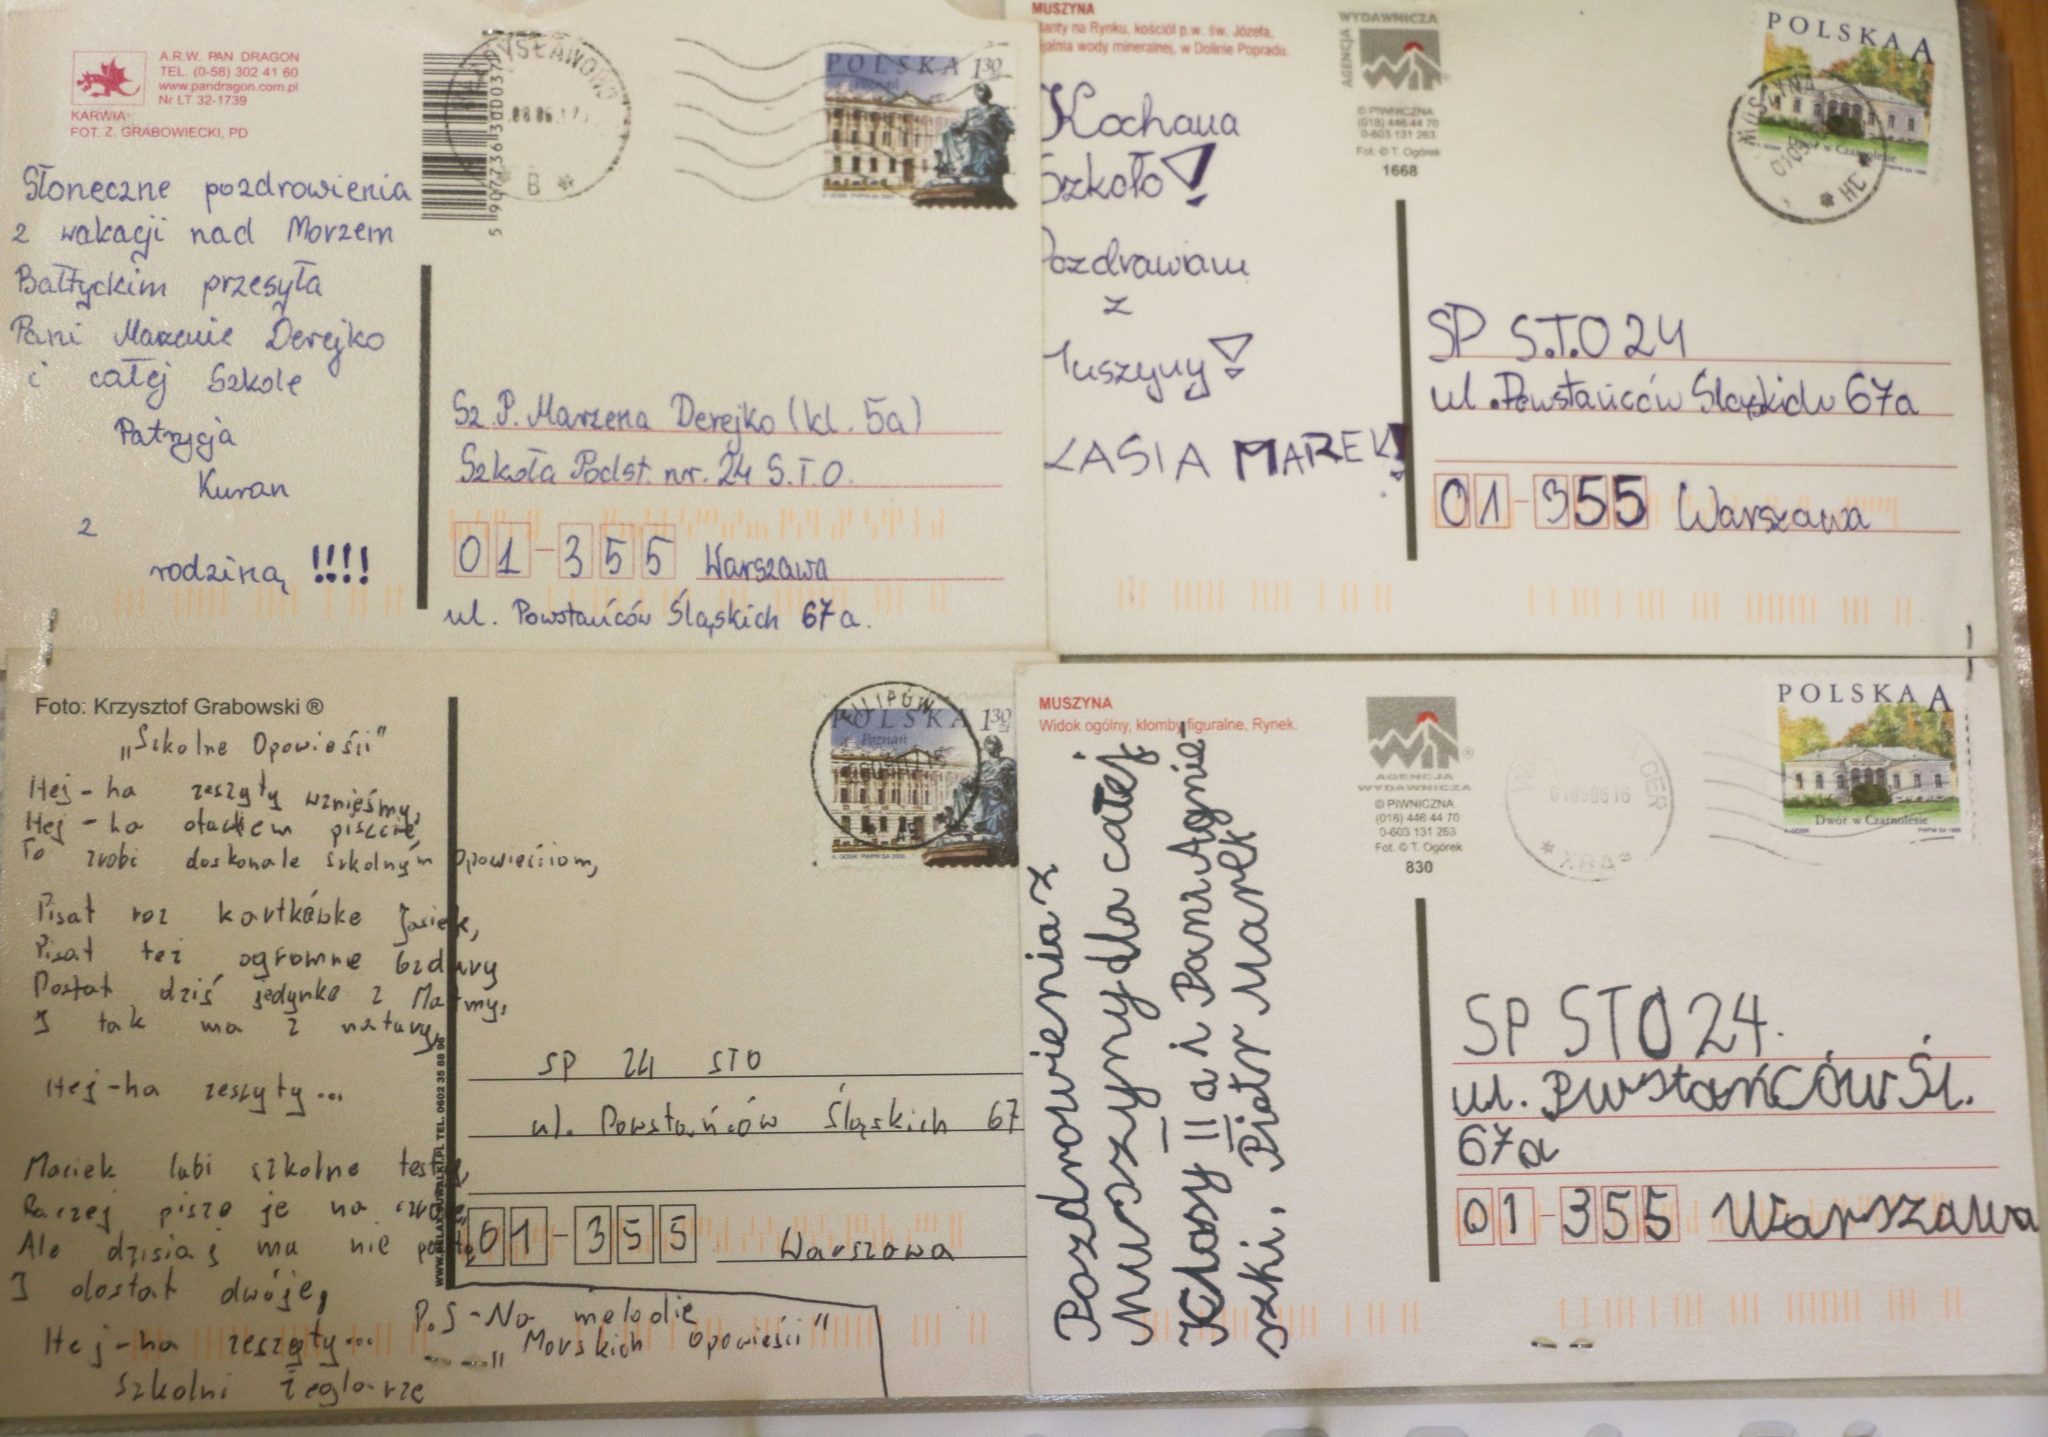 A.R.W. PAN DRAGON
TEL. (0-58) 302 41 60
www.pandragon.com.pl
Nr LT 32-1739
KARWIA
FOT. Z. GRABOWIECKI, PD
WŁADYSŁAWOWO
B
POLSKA 130
Słoneczne pozdrowienia
z wakacji nad Morzem
Bałtyckim przesyła
Pani Marzenie Derejko
i całej Szkole
Patrycja
Kuran
z
rodziną !!!!
Sz. P. Marzena Derejko (kl. 5a)
Szkoła Podst. nr. 24 S.T.O.
01-355 Warszawa
ul. Powstańców Śląskich 67a.
MUSZYNA
Planty na Rynku, kościół p.w. św. Józefa,
pijalnia wody mineralnej, w Dolinie Popradu.
AGENCJA
WYDAWNICZA
© PIWNICZNA
(018) 446 44 70
0-603 131 263
Fot. © T. Ogórek
1668
POLSKA A
Dwór w Czarnolesie
MUSZYNA
Kochana
Szkoło!
Pozdrawiam
z
Muszyny!
KASIA MAREK!
SP S.T.O 24
ul. Powstańców Śląskich 67a
01-355 Warszawa
Foto: Krzysztof Grabowski ®
FILIPÓW
POLSKA 130
Poznań
„Szkolne Opowieści"
Hej-ha zeszyty wznieśmy,
Hej-ha ołówkiem piszcie,
To zrobi doskonale szkolnym opowieściom,
Pisał raz kartkówkę Jasiek,
Pisał też ogromne bzdury
Dostał dziś jedynkę z Matmy,
I tak ma z natury,
Hej-ha zeszyty...
Maciek lubi szkolne testy,
Raczej pisze je na
Ale dzisiaj ma nie
I dostał dwóję,
Hej-ha zeszyty...
Szkolni Żeglarze
SP 24 STO
ul. Powstańców Śląskich 67
01-355 Warszawa
P.S-Na melodię
„Morskich Opowieści"
MUSZYNA
Widok ogólny, klomby figuralne, Rynek.
AGENCJA
WYDAWNICZA
© PIWNICZNA
(018) 446 44 70
0-603 131 263
Fot. © T. Ogórek
830
POLSKA A
Dwór w Czarnolesie
Pozdrowienia z
Muszyny dla całej
Klasy II a i Pani Agnie-
szki, Piotr Marek
SP STO 24.
ul. Pwstańców Śl.
67a
01-355 Warszawa